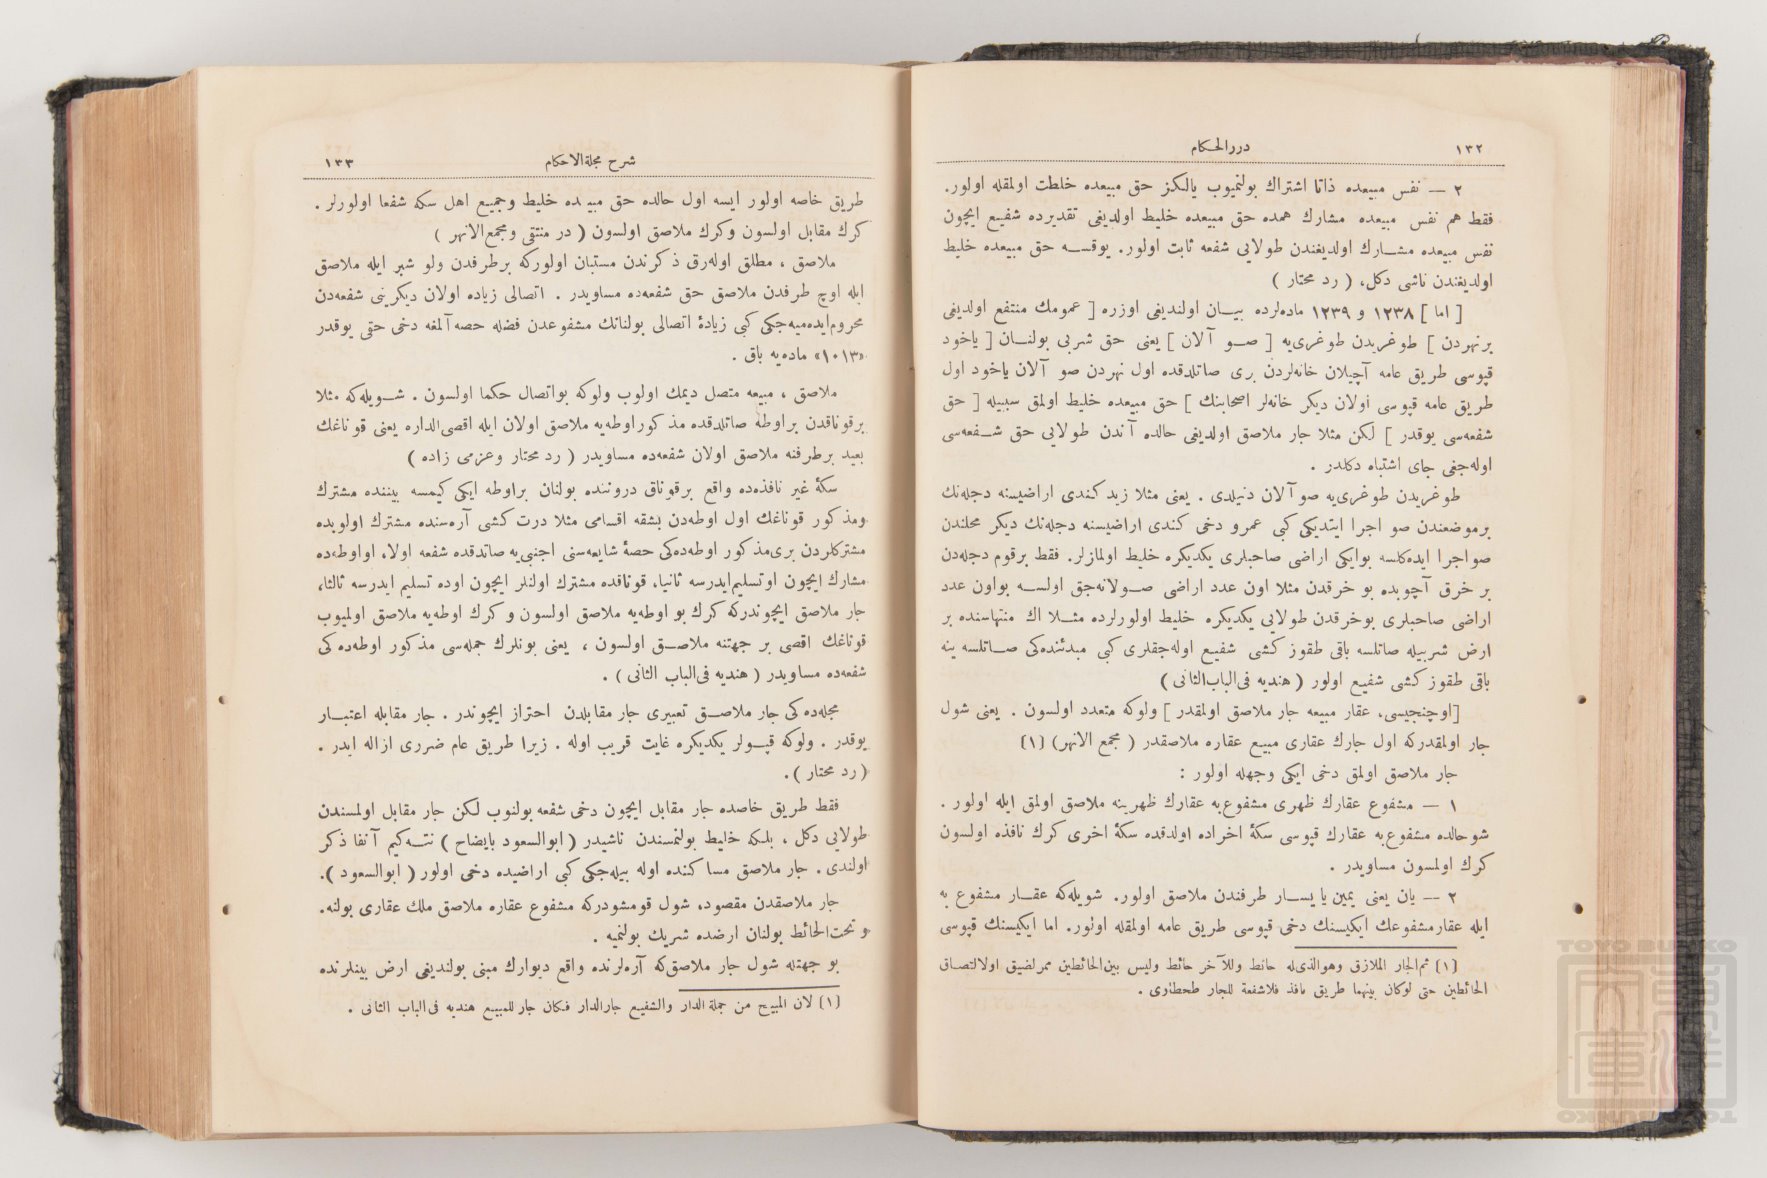 ١٣٢
دررالحكام
٢ — نفس مبیعده ذاتا اشتراك بولنمیوب یالكز حق مبیعده خلطت اولمقله اولور.
فقط هم نفس مبیعده مشارك همده حق مبیعده خلیط اولدیغی تقدیرده شفیع ایچون
نفس مبیعده مشارك اولدیغندن طولایی شفعه ثابت اولور. یوقسه حق مبیعده خلیط
اولدیغندن ناشی دكل، ( رد محتار )
[ اما ] ١٢٣٨ و ١٢٣٩ ماده‌لرده بیان اولندیغی اوزره [ عمومك منتفع اولدیغی
برنهردن ] طوغریدن طوغری‌یه [ صو آلان ] یعنی حق شربی بولنان [ یاخود
قپوسی طریق عامه آچیلان خانه‌لردن بری صاتلدقده اول نهردن صو آلان یاخود اول
طریق عامه قپوسی اولان دیكر خانه‌لر اصحابنك ] حق مبیعده خلیط اولمق سببیله [ حق
شفعه‌سی یوقدر ] لكن مثلا جار ملاصق اولدیغی حالده آندن طولایی حق شفعه‌سی
اوله‌جغی جای اشتباه دكلدر .
طوغریدن طوغری‌یه صو آلان دنیلدی . یعنی مثلا زید كندی اراضیسنه دجله‌نك
برموضعندن صو اجرا ایتدیكی كبی عمرو دخی كندی اراضیسنه دجله‌نك دیكر محلندن
صو اجرا ایده‌كلسه بوایكی اراضی صاحبلری یكدیكره خلیط اولمازلر. فقط برقوم دجله‌دن
بر خرق آچوبده بو خرقدن مثلا اون عدد اراضی صولانه‌جق اولسه بواون عدد
اراضی صاحبلری بوخرقدن طولایی یكدیكره خلیط اولورلرده مثلا اك منتهاسنده بر
ارض شربیله صاتلسه باقی طقوز كشی شفیع اوله‌جقلری كبی مبدئنده‌كی صاتلسه ینه
باقی طقوز كشی شفیع اولور ( هندیه فی‌الباب‌الثانی )
[اوچنجیسی، عقار مبیعه جار ملاصق اولمقدر ] ولوكه متعدد اولسون . یعنی شول
جار اولمقدركه اول جارك عقاری مبیع عقاره ملاصقدر ( مجمع الانهر) (١)
جار ملاصق اولمق دخی ایكی وجهله اولور :
١ — مشفوع عقارك ظهری مشفوع‌به عقارك ظهرینه ملاصق اولمق ایله اولور .
شو حالده مشفوع‌به عقارك قپوسی سكهٔ اخراده اولدقده سكهٔ اخری كرك نافذه اولسون
كرك اولمسون مساویدر .
٢ — یان یعنی یمین یا یسار طرفندن ملاصق اولور. شویله‌كه عقار مشفوع به
ایله عقار مشفوعك ایكیسنك دخی قپوسی طریق عامه اولمقله اولور. اما ایكیسنك قپوسی
(١) ثم‌الجار الملازق وهوالذی‌له حائط وللآخر حائط ولیس بین‌الحائطین ممرلضیق اولالتصاق
الحائطین حتی لوكان بینهما طریق نافذ فلاشفعة للجار طحطاوی .
شرح مجلة‌الاحكام
١٣٣
طریق خاصه اولور ایسه اول حالده حق مبیعده خلیط وجمیع اهل سكه شفعا اولورلر .
كرك مقابل اولسون وكرك ملاصق اولسون ( در منتقی ومجمع‌الانهر )
ملاصق ، مطلق اوله‌رق ذكرندن مستبان اولوركه برطرفدن ولو شبر ایله ملاصق
ایله اوچ طرفدن ملاصق حق شفعه‌ده مساویدر . اتصالی زیاده اولان دیكرینی شفعه‌دن
محروم‌ایده‌میه‌جكی كبی زیادهٔ اتصالی بولنانك مشفوعدن فضله حصه آلمغه دخی حقی یوقدر
«١٠١٣» ماده‌یه باق .
ملاصق ، مبیعه متصل دیمك اولوب ولوكه بواتصال حكما اولسون . شویله‌كه مثلا
برقوناقدن براوطه صاتلدقده مذكوراوطه‌یه ملاصق اولان ایله اقصی‌الداره یعنی قوناغك
بعید برطرفنه ملاصق اولان شفعه‌ده مساویدر ( رد محتار وعزمی زاده )
سكهٔ غیر نافذه‌ده واقع برقوناق دروننده بولنان براوطه ایكی كیمسه بیننده مشترك
ومذكور قوناغك اول اوطه‌دن بشقه اقسامی مثلا درت كشی آره‌سنده مشترك اولوبده
مشتركلردن بری‌مذكور اوطه‌ده‌كی حصهٔ شایعه‌سنی اجنبی‌یه صاتدقده شفعه اولا، اواوطه‌ده
مشارك ایچون اوتسلیم‌ایدرسه ثانیا، قوناقده مشترك اولنلر ایچون اوده تسلیم ایدرسه ثالثا،
جار ملاصق ایچوندركه كرك بو اوطه‌یه ملاصق اولسون و كرك اوطه‌یه ملاصق اولمیوب
قوناغك اقصی بر جهتنه ملاصق اولسون ، یعنی بونلرك جمله‌سی مذكور اوطه‌ده‌كی
شفعه‌ده مساویدر ( هندیه فی‌الباب الثانی ) .
مجله‌ده‌كی جار ملاصق تعبیری جار مقابلدن احتراز ایچوندر . جار مقابله اعتبار
یوقدر . ولوكه قپولر یكدیكره غایت قریب اوله . زیرا طریق عام ضرری ازاله ایدر .
( رد محتار ).
فقط طریق خاصده جار مقابل ایچون دخی شفعه بولنوب لكن جار مقابل اولمسندن
طولایی دكل ، بلكه خلیط بولنمسندن ناشیدر ( ابوالسعود بایضاح ) نته‌كیم آنفا ذكر
اولندی . جار ملاصق مساكنده اوله بیله‌جكی كبی اراضیده دخی اولور ( ابوالسعود ).
جار ملاصقدن مقصود، شول قومشودركه مشفوع عقاره ملاصق ملك عقاری بولنه.
و تحت‌الحائط بولنان ارضده شریك بولنمیه .
بو جهتله شول جار ملاصق‌كه آره‌لرنده واقع دیوارك مبنی بولندیغی ارض بینلرنده
(١) لان المبیع من جملة الدار والشفیع جارالدار فكان جار للمبیع هندیه فی‌الباب الثانی .
TOYO BUNKO